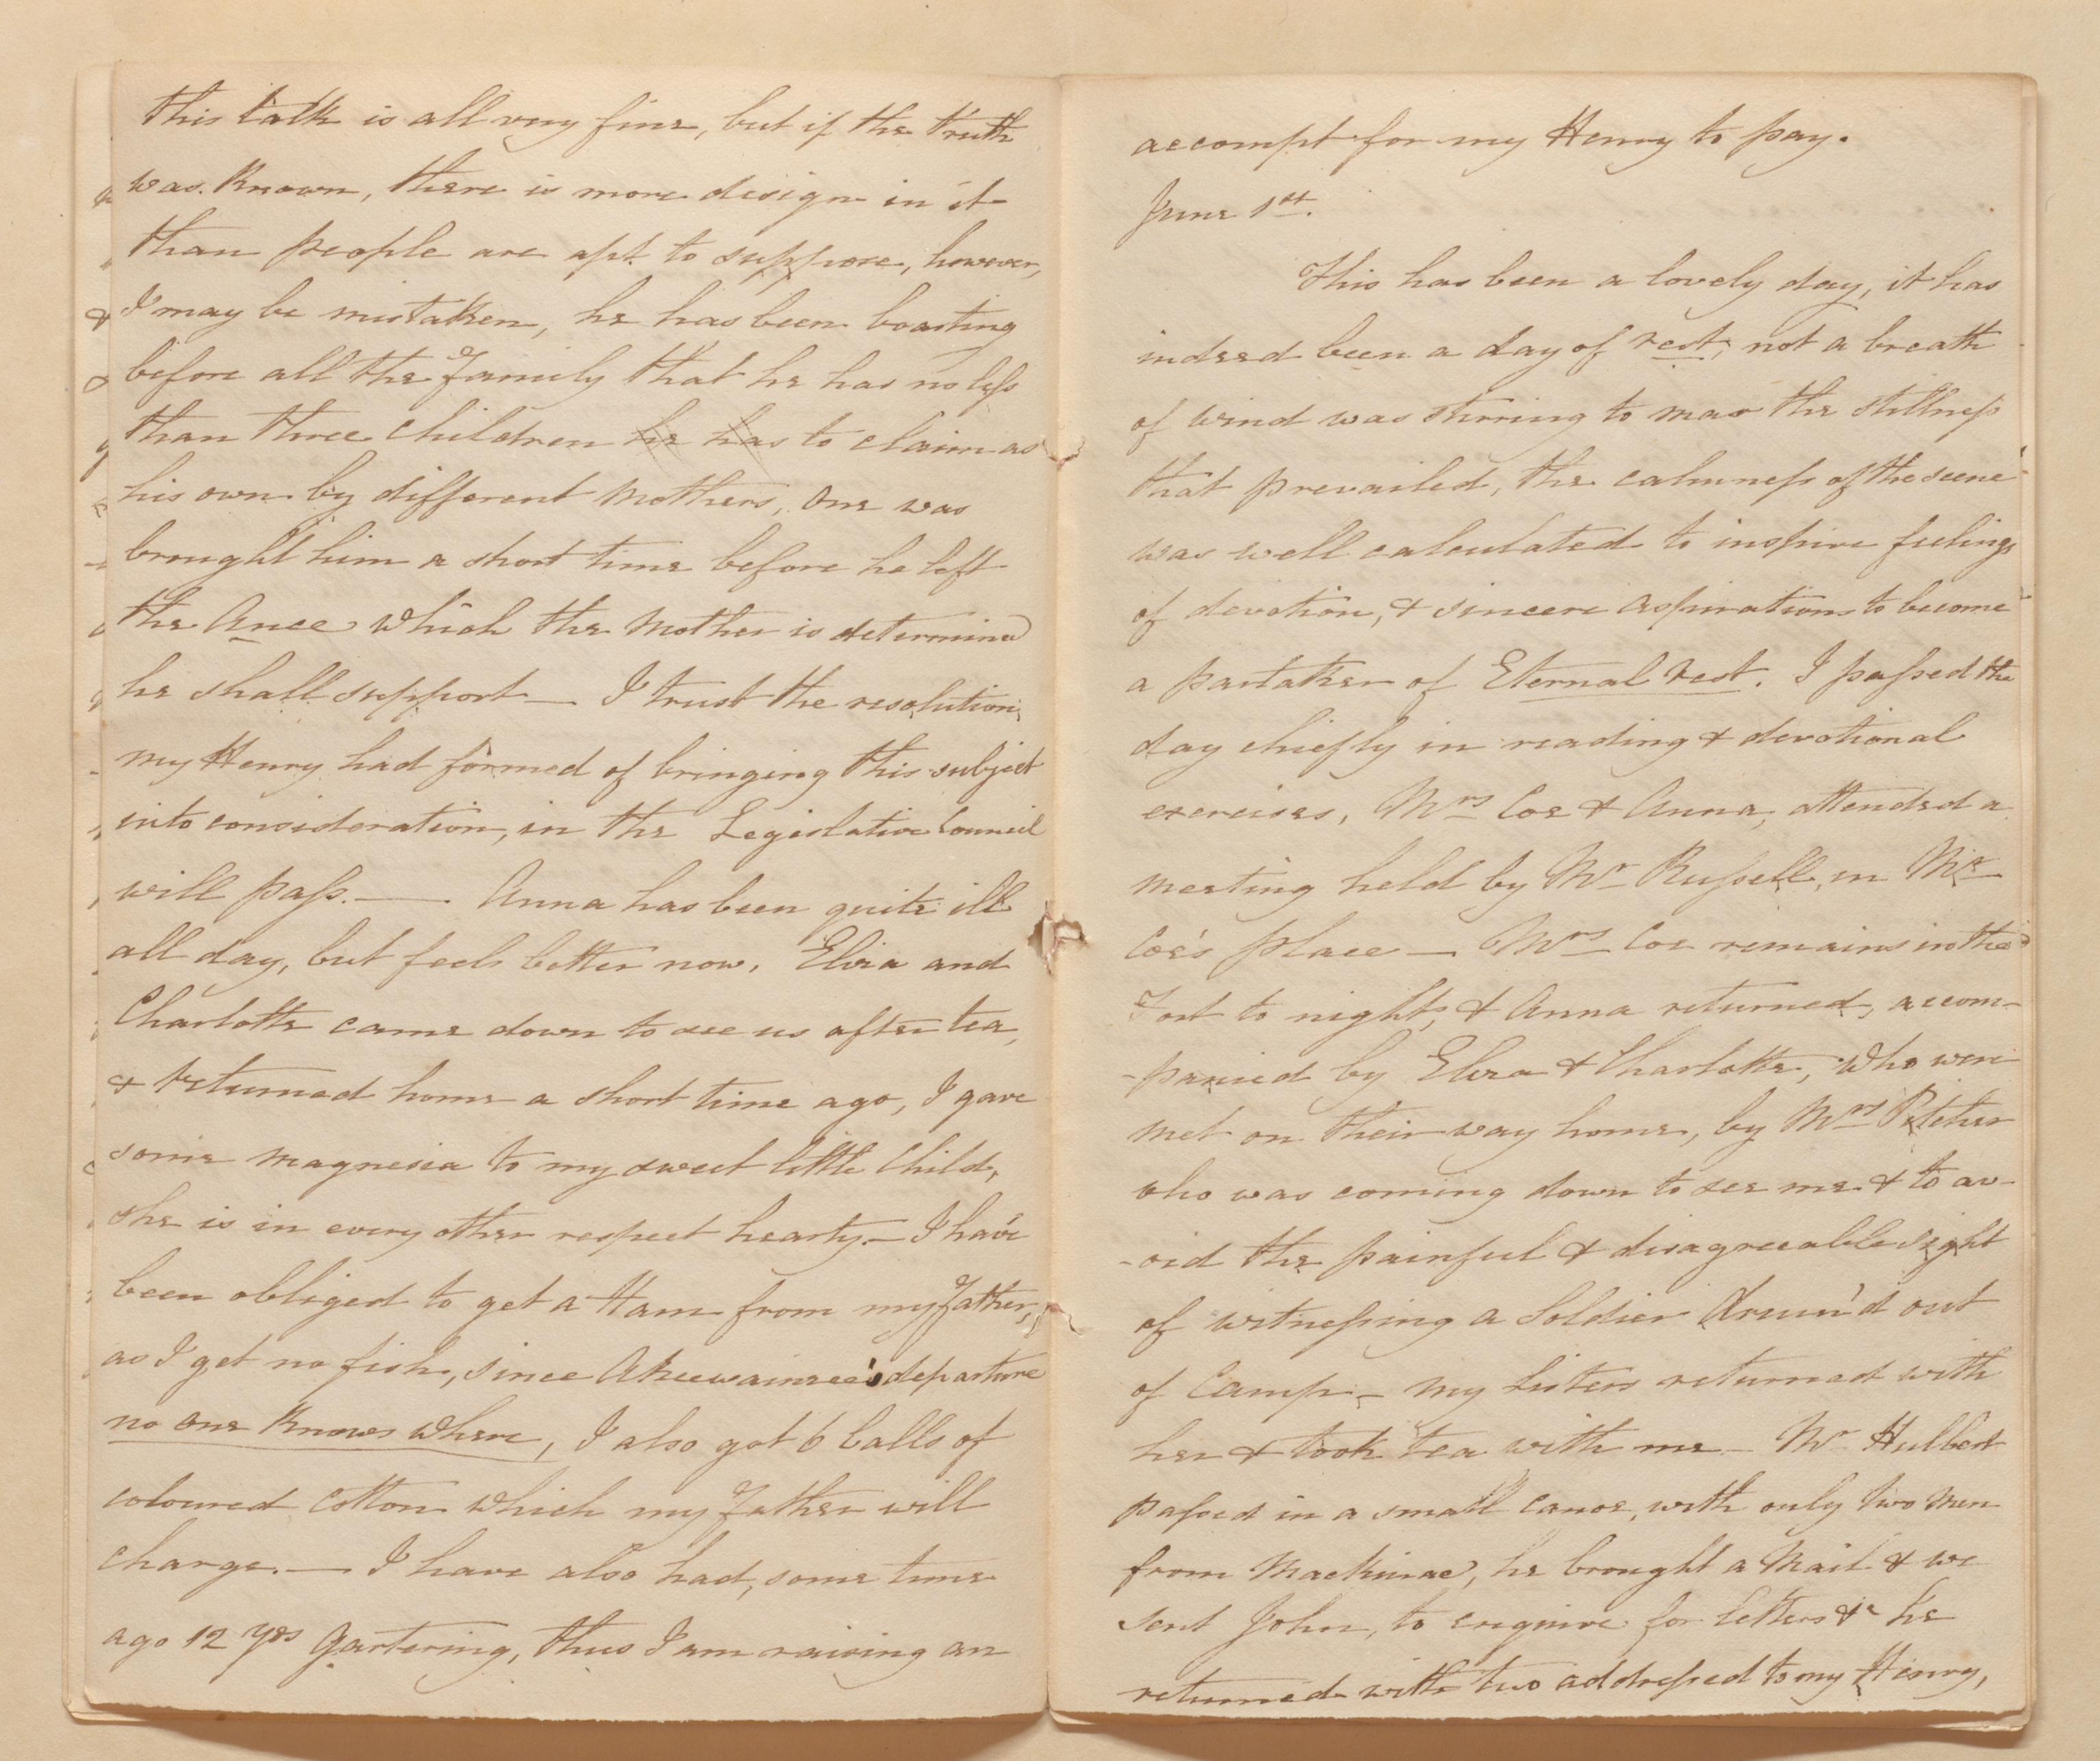 This talk is all very fine, but if the truth
was Known, there is more design in it
than people are apt to suppose, however,
I may be mistaken, he has been boasting
before all the Family that he has no less
than three children he has to claim as
his own by different Mothers, One was
brought him a short time before he left
the Ance which the Mother is determined
he shall support — I trust the resolution
my Henry had formed of bringing this subject
into consideration, in the Legislative Council
will pass. — Anna has been quite ill
all day, but feels better now. Eliza and
Charlotte came down to see us after tea,
& returned home a short time ago, I gave
some magnesia to my sweet little Child,
she is in every other respect hearty. — I have
been obliged to get a Ham from my Father,
as I get no fish, since Akeewainzee's departure
no one Knows where, I also got 6 balls of
coloured cotton which my Father will
charge. — I have also had, some time
ago 12 yds Gartering, thus I am raising an
accompt for my Henry to pay.
June 1st.
This has been a lovely day, it has
indeed been a day of rest, not a breath
of wind was stirring to mar the stillness
that prevailed, the calmness of the scene
was well calculated to inspire feelings
of devotion, & sincere aspirations to become
a partaker of Eternal rest. I passed the
day chiefly in reading & devotional
exercises, Mrs Coe & Anna, attended a
meeting held by Mr Russell, in Mr
Coe's place — Mrs Coe remains in the
Fort to night, & Anna returned, accom-
-panied by Eliza & Charlotte, who were
met on their way home, by Mrs Pitcher
who was coming down to see me & to av-
-oid the painful & disagreeable sight
of witnessing a Soldier Drum'd out
of Camp — my Sisters returned with
her & took tea with me — Mr Hulbert
passed in a small canoe, with only two men
from Mackinac, he brought a Mail & we
sent John, to enquire for letters &c he
returned with two addressed to my Henry,